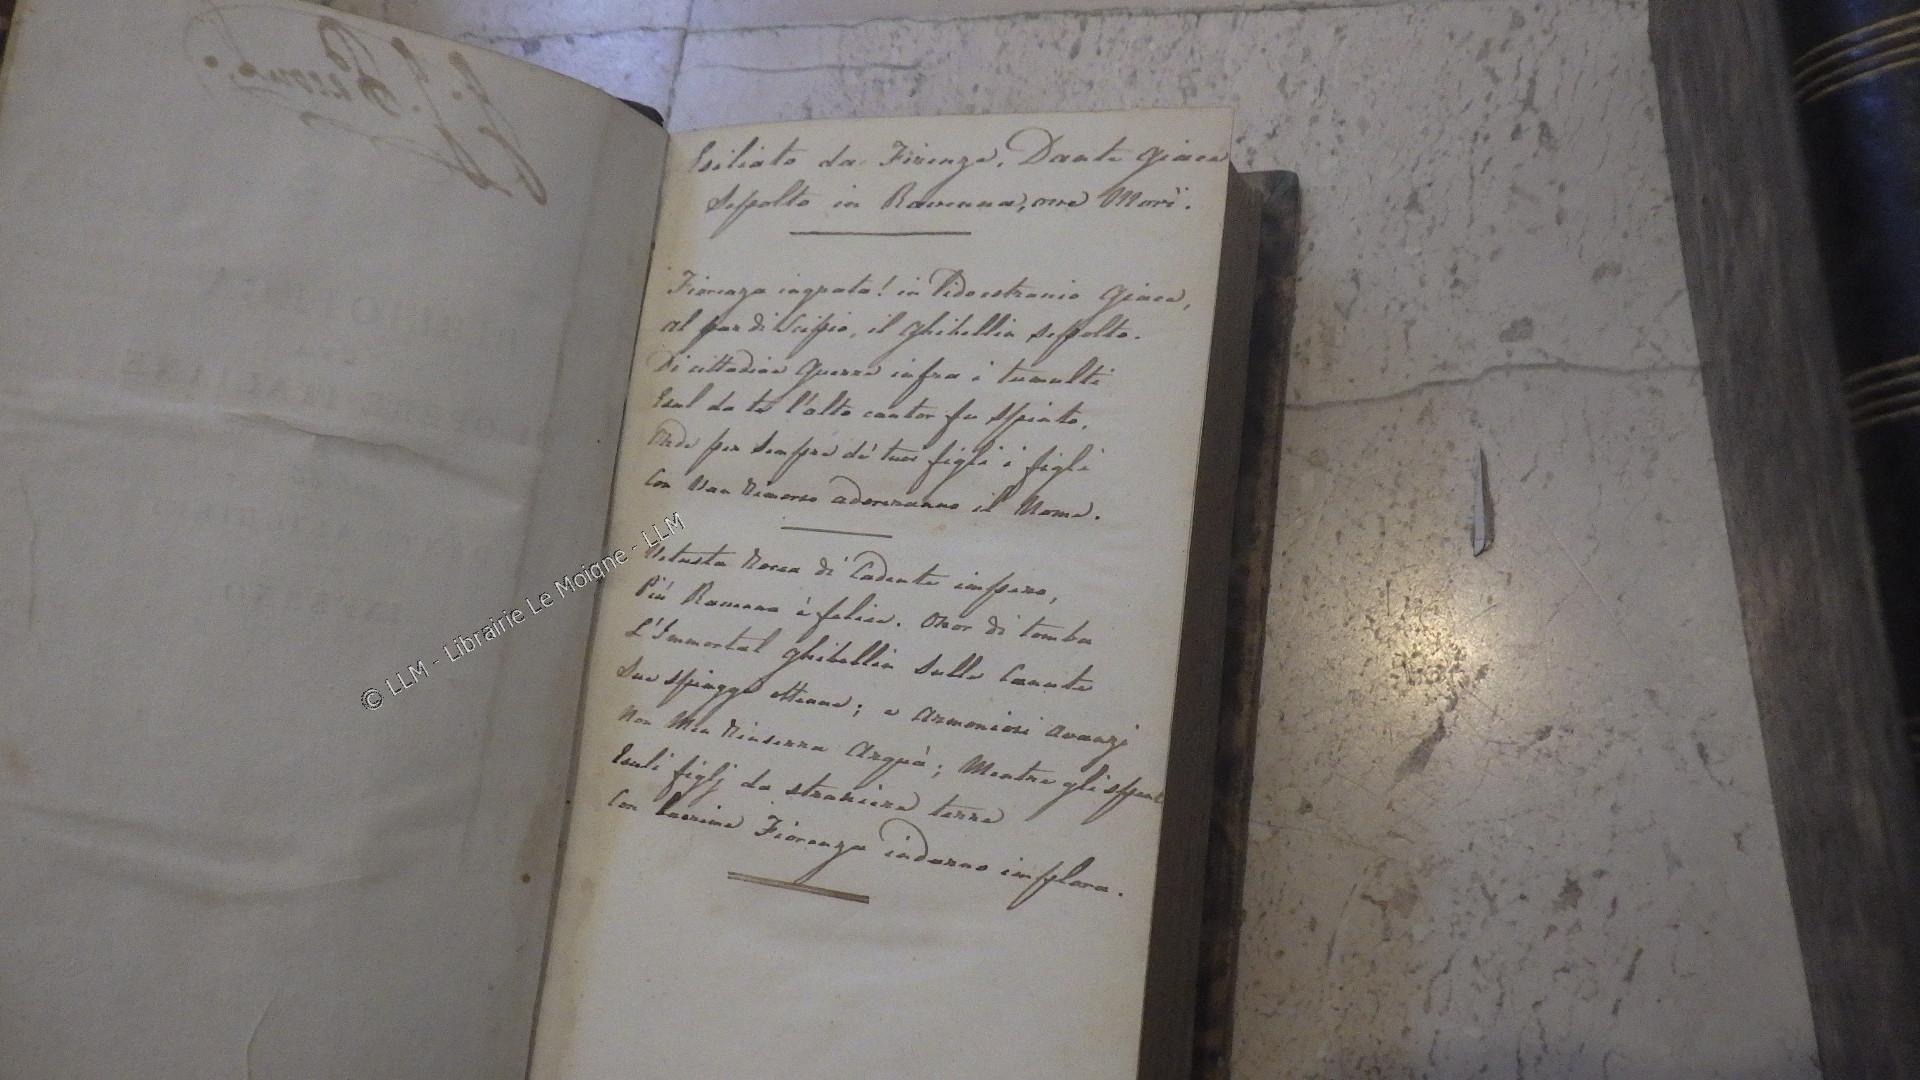 Esiliato da Firenze, Dante giace
Sepolto in Ravenna, ove Morì.
Fiorenza ingrata! in lido estranio giace,
al par di Scipio, il ghibellin sepolto.
Di cittadine guerre infra i tumulti
Esul da te l'alto cantor fu spinto,
Onde per sempre de' tuoi figli i figli
Con van rimorso adoreranno il Nome.
Vetusta Rocca di Cadente impero,
Più Ravenna è felice. Onor di tomba
L'Immortal ghibellin Sulle Canute
Sue spiagge ottenne; e armoniosi avanzi
Non Men rinserra Arquà; Mentre gli spenti
Esuli figlj da straniere terre
Con lacrime Fiorenza indarno implora.
© LLM - Librairie Le Moiane - LLM